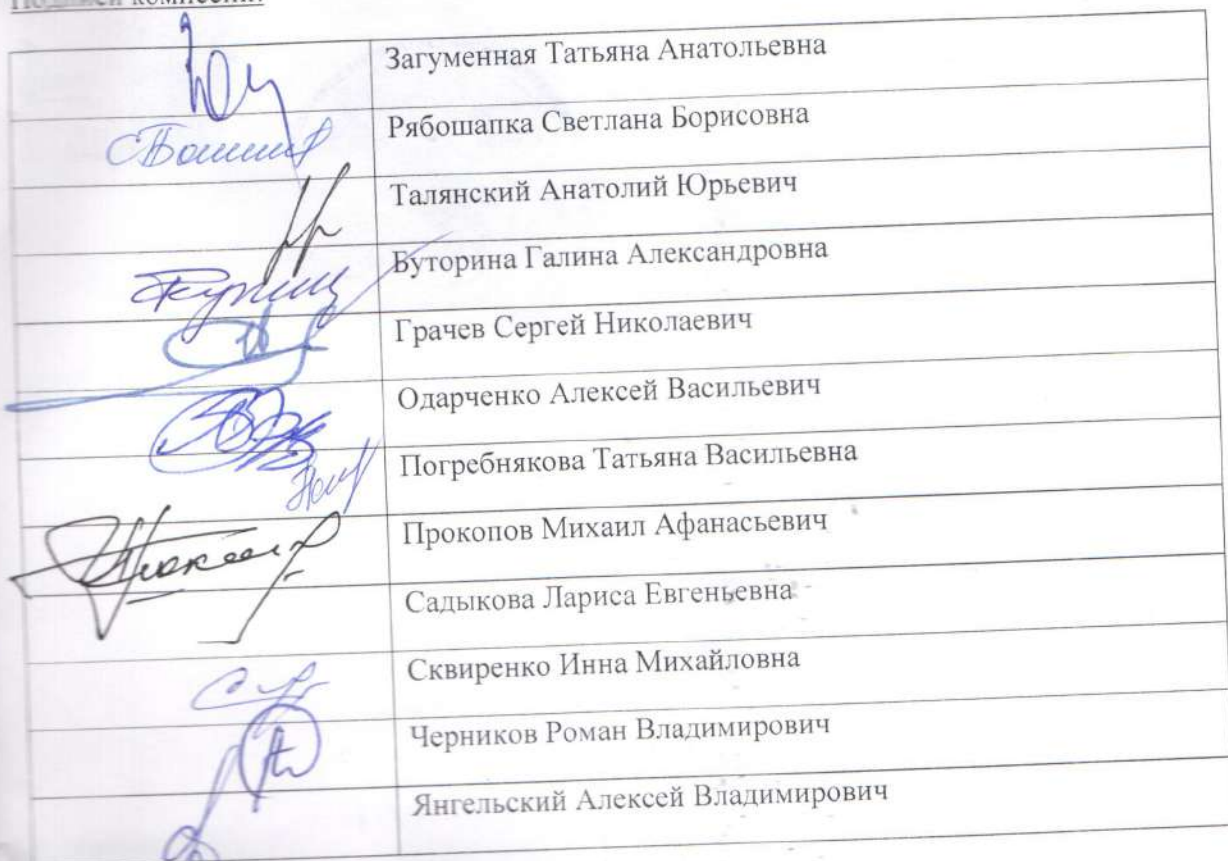 Подписи комиссии:
Загуменная Татьяна Анатольевна
Рябошапка Светлана Борисовна
Талянский Анатолий Юрьевич
Буторина Галина Александровна
Грачев Сергей Николаевич
Одарченко Алексей Васильевич
Погребнякова Татьяна Васильевна
Прокопов Михаил Афанасьевич
Садыкова Лариса Евгеньевна
Сквиренко Инна Михайловна
Черников Роман Владимирович
Янгельский Алексей Владимирович